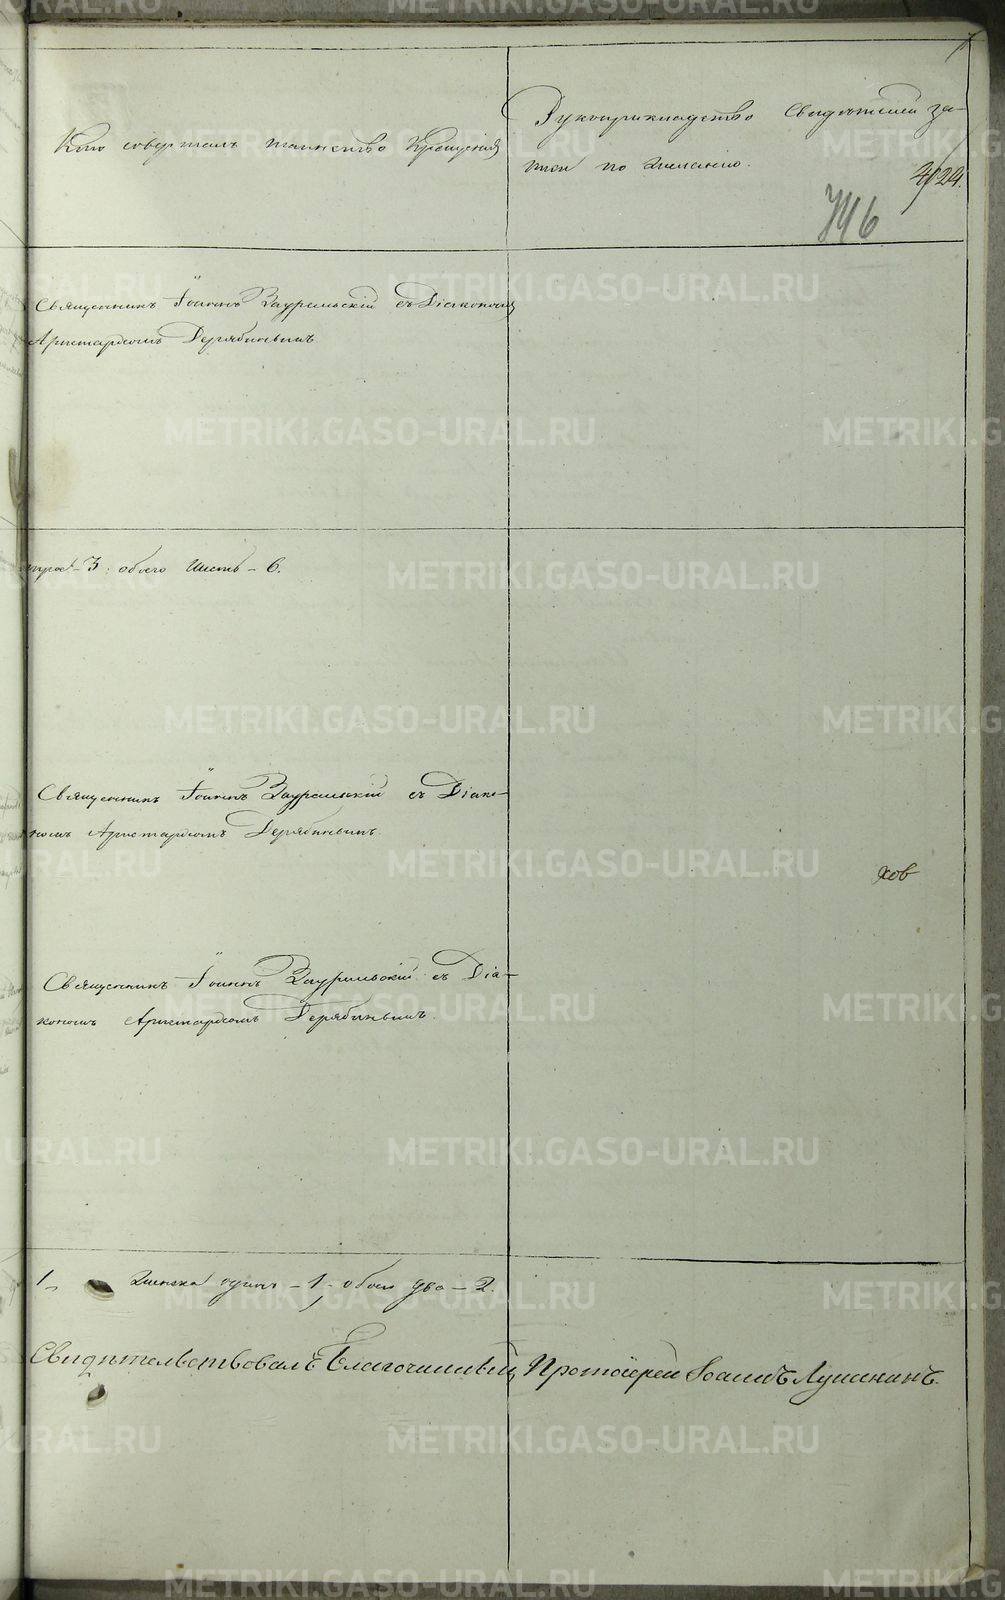 Кто совершалъ таинство Крещенія
Рукоприкладство Свидѣтелей за-
писи по желанію.
424.
746
Священникъ Іоаннъ Зауральскій съ Діакономъ
Аристархомъ Дерябинымъ
3. обоего Шесть - 6.
Священникъ Іоаннъ Зауральскій съ Діако-
номъ Аристархомъ Дерябинымъ.
хов
Священникъ Іоаннъ Зауральскій съ Діа-
кономъ Аристархомъ Дерябинымъ.
1, Женска одинъ - 1, обоего два - 2.
Свидѣтельствовалъ Благочинный Протоіерей Іоаннъ Лушинъ.
METRIKI.GASO-URAL.RU